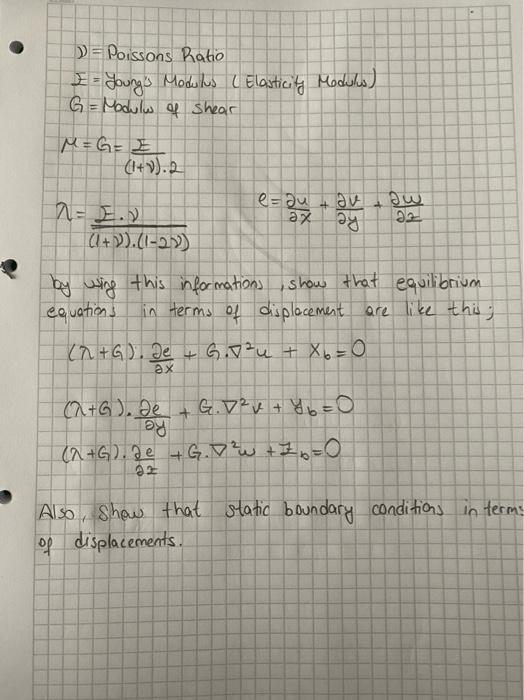 ν = Poissons Ratio
E = Young's Modulus (Elasticity Modulus)
G = Modulus of shear
μ = G = E / (1+ν).2
λ = E.ν / (1+ν).(1-2ν)
e = ∂u/∂x + ∂v/∂y + ∂w/∂z
by using this informations, show that equilibrium
equations in terms of displacement are like this;
(λ+G). ∂e/∂x + G.∇²u + Xb = 0
(λ+G). ∂e/∂y + G.∇²v + Yb = 0
(λ+G). ∂e/∂z + G.∇²w + Zb = 0
Also, show that static boundary conditions in terms
of displacements.